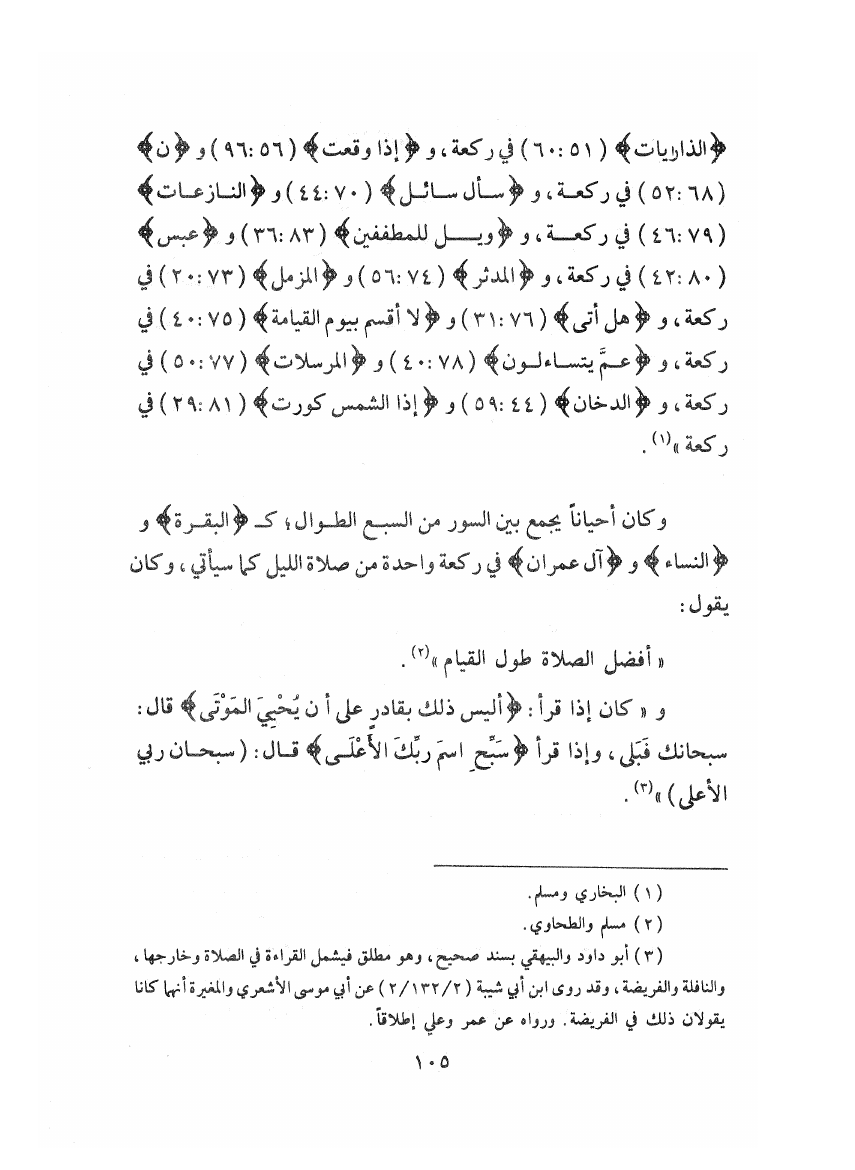 ﴿الذاريات﴾ (٥١ :٦٠) في ركعة، و ﴿إذا وقعت﴾ (٥٦ :٩٦) و ﴿ن﴾
(٦٨ :٥٢) في ركعة، و ﴿سأل سائل﴾ (٧٠ :٤٤) و ﴿النازعات﴾
(٧٩ :٤٦) في ركعة، و ﴿ويل للمطففين﴾ (٨٣ :٣٦) و ﴿عبس﴾
(٨٠ :٤٢) في ركعة، و ﴿المدثر﴾ (٧٤ :٥٦) و ﴿المزمل﴾ (٧٣ :٢٠) في
ركعة، و ﴿هل أتى﴾ (٧٦ :٣١) و ﴿لا أقسم بيوم القيامة﴾ (٧٥ :٤٠) في
ركعة، و ﴿عمَّ يتساءلون﴾ (٧٨ :٤٠) و ﴿المرسلات﴾ (٧٧ :٥٠) في
ركعة، و ﴿الدخان﴾ (٤٤ :٥٩) و ﴿إذا الشمس كورت﴾ (٨١ :٢٩) في
ركعة»(١).
وكان أحياناً يجمع بين السور من السبع الطوال؛ كـ ﴿البقرة﴾ و
﴿النساء﴾ و ﴿آل عمران﴾ في ركعة واحدة من صلاة الليل كما سيأتي، وكان
يقول:
« أفضل الصلاة طول القيام »(٢).
و « كان إذا قرأ: ﴿أليس ذلك بقادرٍ على أن يُحْيِيَ المَوْتَى﴾ قال:
سبحانك فَبَلى، وإذا قرأ ﴿سَبِّحِ اسمَ ربِّكَ الأَعْلَى﴾ قال: (سبحان ربي
الأعلى) »(٣).
(١) البخاري ومسلم.
(٢) مسلم والطحاوي.
(٣) أبو داود والبيهقي بسند صحيح، وهو مطلق فيشمل القراءة في الصلاة وخارجها،
والنافلة والفريضة، وقد روى ابن أبي شيبة (٢/١٣٢/٢) عن أبي موسى الأشعري والمغيرة أنهما كانا
يقولان ذلك في الفريضة. ورواه عن عمر وعلي إطلاقاً.
١٠٥